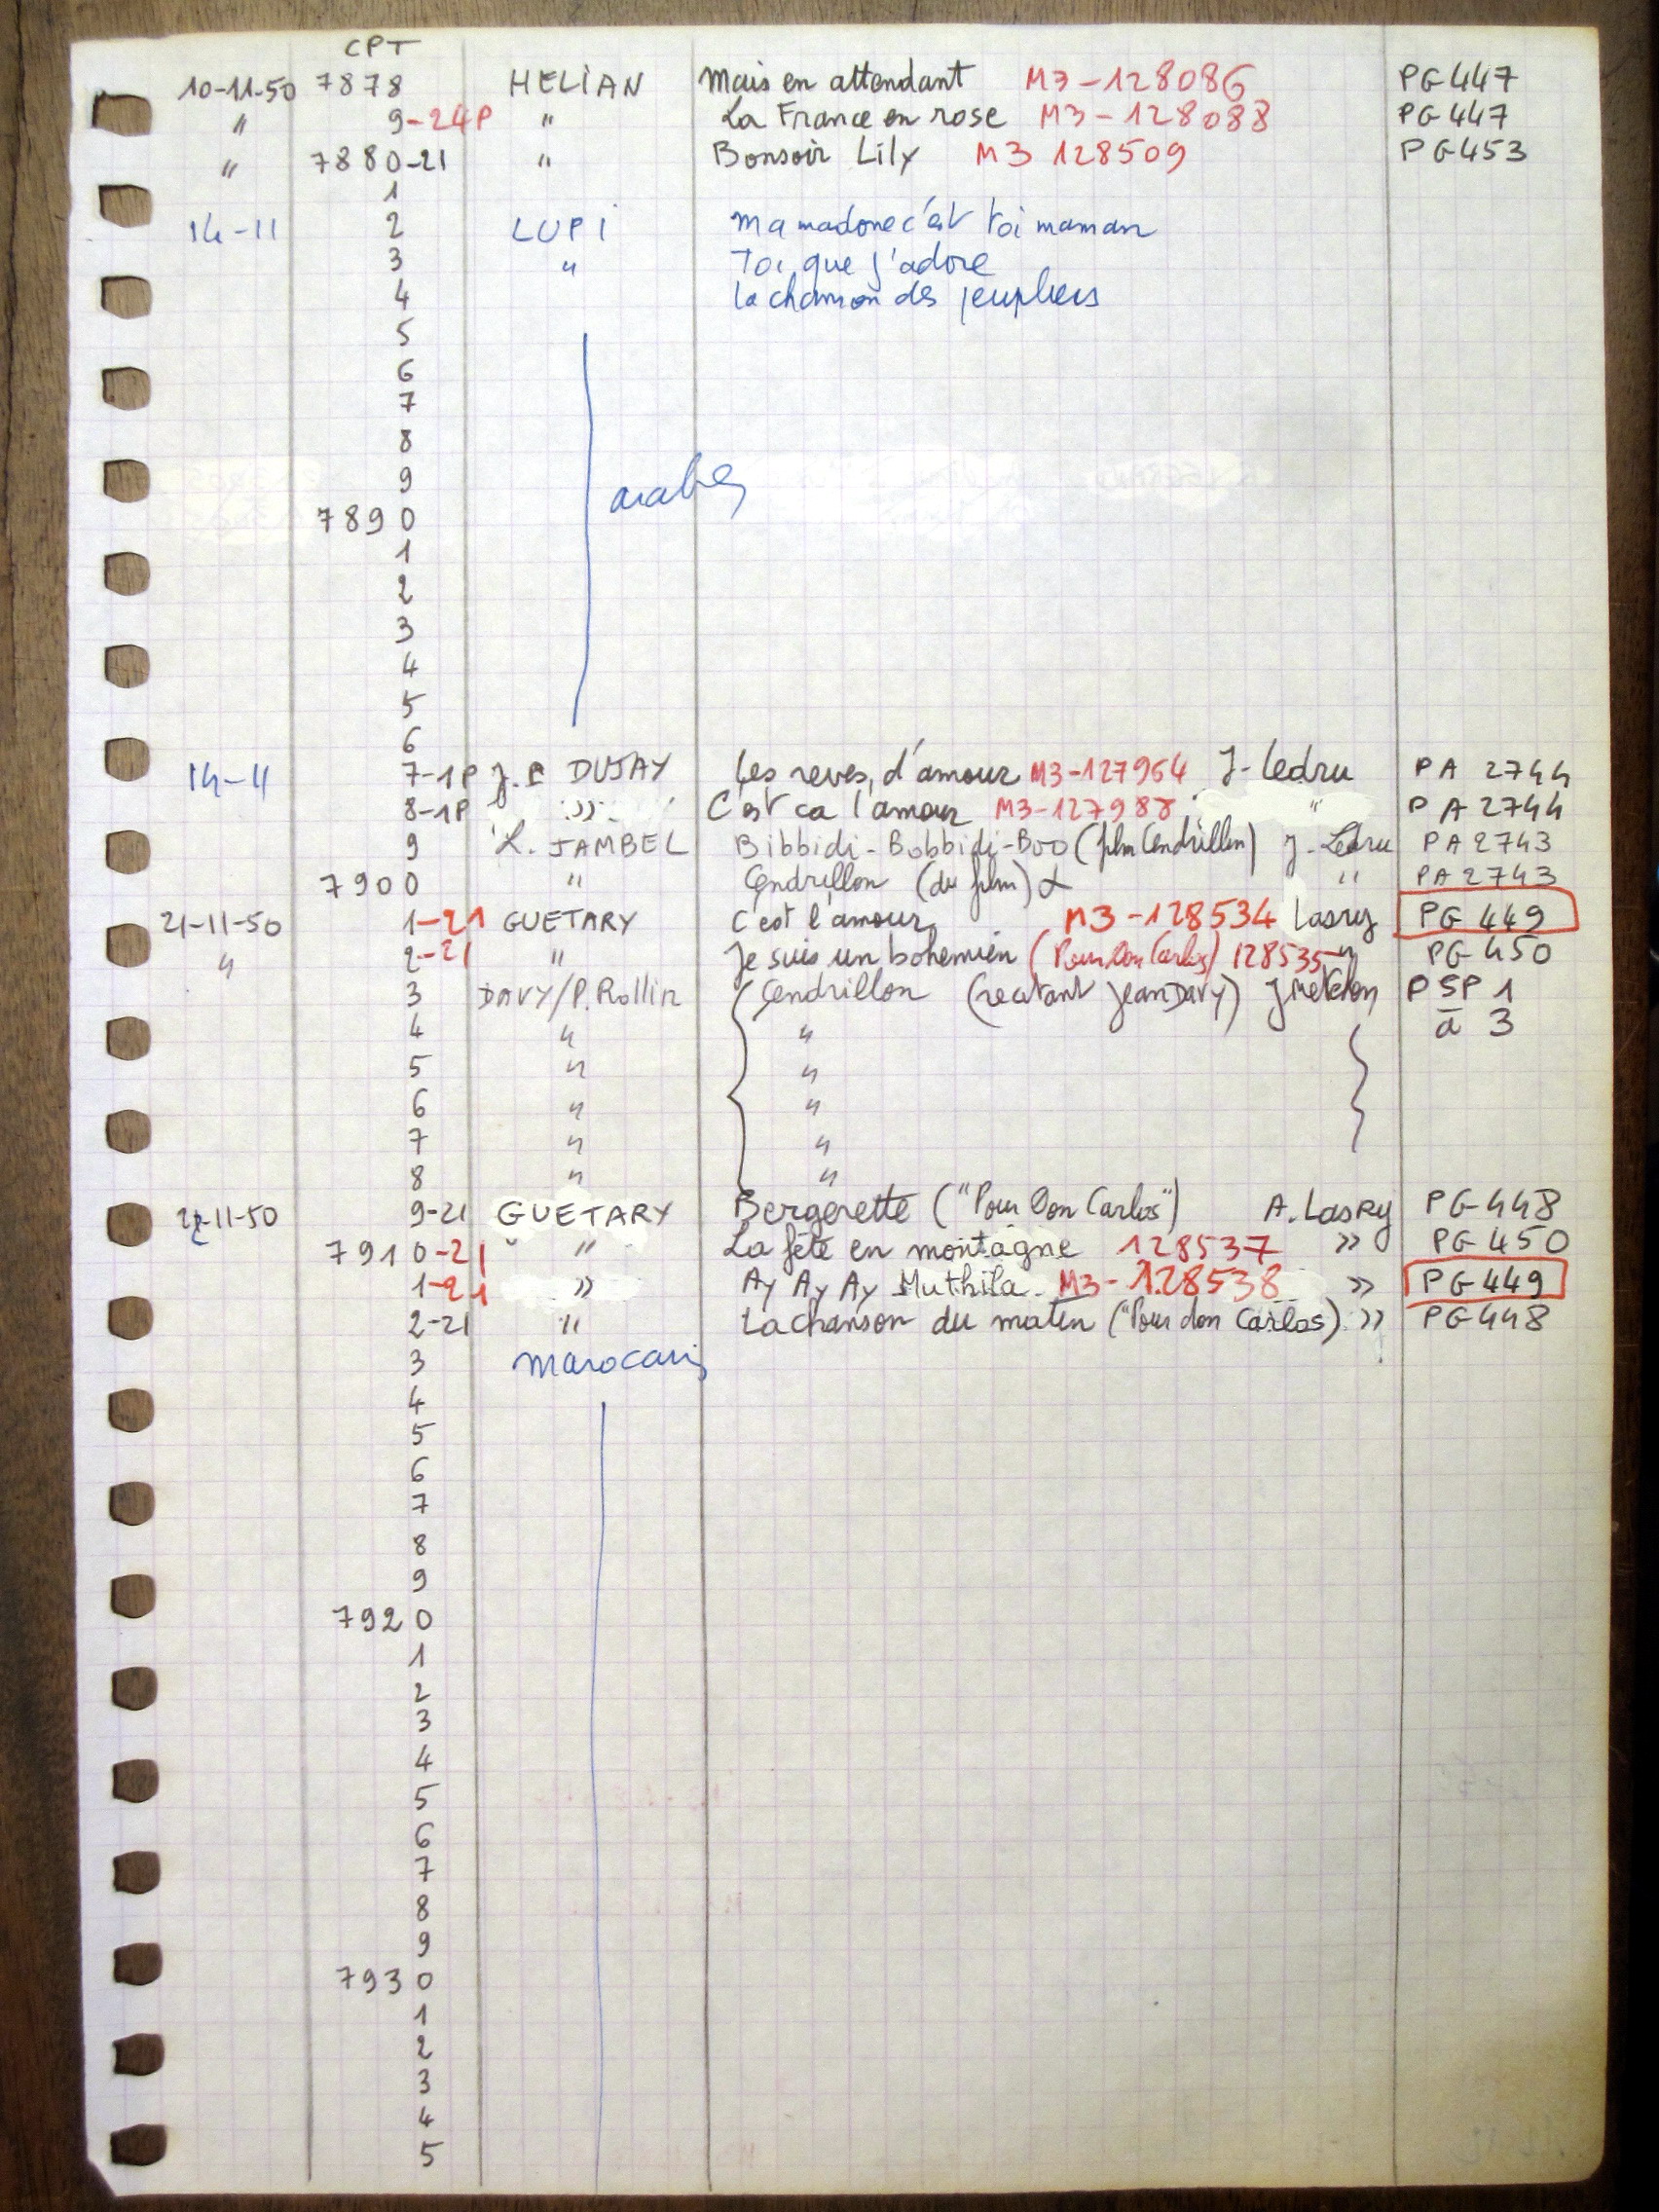 CPT
10-11-50 7878 HELIAN Mais en attendant M3-128086 PG 447
" 9-24P " La France en rose M3-128088 PG 447
" 7880-21 " Bonsoir Lily M3 128509 PG 453
1
14-11 2 LUPI Ma madone c'est toi maman
3 " Toi que j'adore
4 la chanson des peupliers
5
6
7
8
9 arabes
7890
1
2
3
4
5
6
14-11 7-1P DUJAY Les reves d'amour M3-127964 J. Ledru PA 2744
8-1P » C'est ca l'amour M3-127988 " PA 2744
9 L. JAMBEL Bibbidi-Bobbidi-Boo (film Cendrillon) J. Ledru PA 2743
7900 " Cendrillon (du film) " PA 2743
21-11-50 1-21 GUETARY C'est l'amour M3-128534 Lasry PG 449
" 2-21 " Je suis un bohemien (Pour Don Carlos) 128535 " PG 450
3 DAVY/P. Rollin (Cendrillon (recitant Jean DAVY) J Metehen PSP 1
4 " " à 3
5 " "
6 " "
7 " "
8 " "
22-11-50 9-21 GUETARY Bergerette ("Pour Don Carlos") A. Lasry PG 448
7910-21 " La fête en montagne 128537 » PG 450
1-21 » Ay Ay Ay Muthila M3-128538 » PG 449
2-21 " La chanson du matin ("Pour don Carlos) » PG 448
3 marocains
4
5
6
7
8
9
7920
1
2
3
4
5
6
7
8
9
7930
1
2
3
4
5